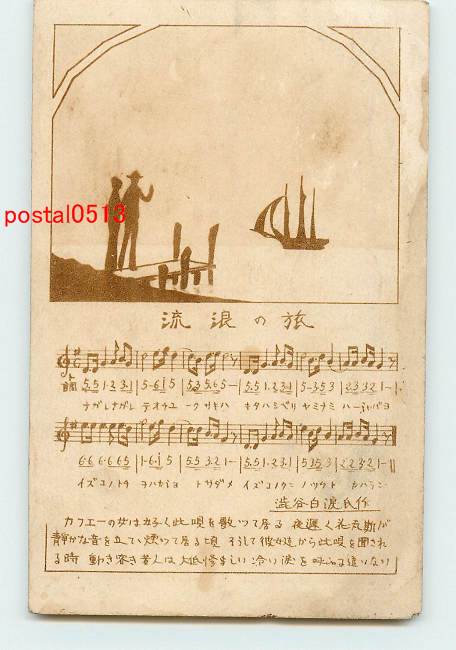 postal0513
流浪の旅
ト調 5 5 1 2 3 1 5 6 i 5 5 3 5 6 5 5 5 1 2 3 1 5 3 5 3 2 3 2 1
ナガレナガレ テオチユ ークサキハ キタハシベリヤ ミナミ ハージャバヨ
6 6 6 6 6 5 1 6 i 5 5 5 3 2 1 5 5 1 2 3 1 5 3 5 3 2 2 3 2 1
イズコノトチ ヲハカミヨ トサダメ イズコノツチ ノツチト
澁谷白涙氏作
カフエーの女は好く此唄を歌つて居る 夜遅く瓦斯が
静かな音を立てゝ燃いて居る頃 そして彼女達から此唄を聞され
る時 動き容き若人は大低惨ましい冷い涙を